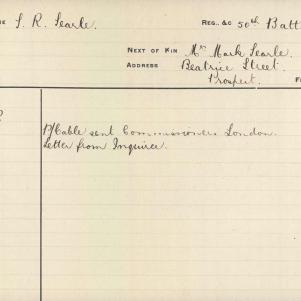 S. R. Searle.
REG., &C 50th Batt
NEXT OF KIN Mr Mark Searle.
ADDRESS Beatrice Street.
Prospect.
Cable sent Commissioners London.
Letter from Inquirer.